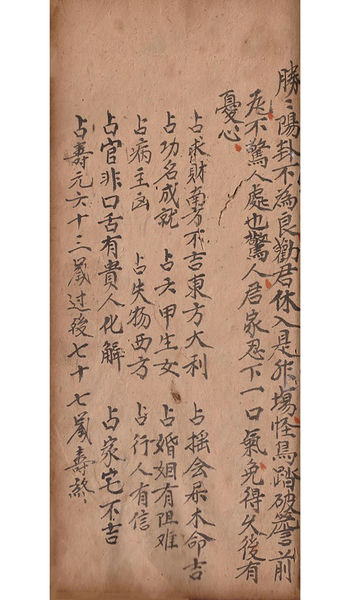 勝〻陽卦不為良勸君休入是非塲怪鳥踏破簷前
瓦不驚人處也驚人君家忍下一口氣免得久後有
憂心
占求財南方不吉東方大利 占摇会屬木命吉
占功名成就 占六甲生女 占婚姻有阻难
占病主凶 占失物西方 占行人有信
占官非口舌有貴人化解 占家宅不吉
占壽元六十三歲过後七十七歲壽終